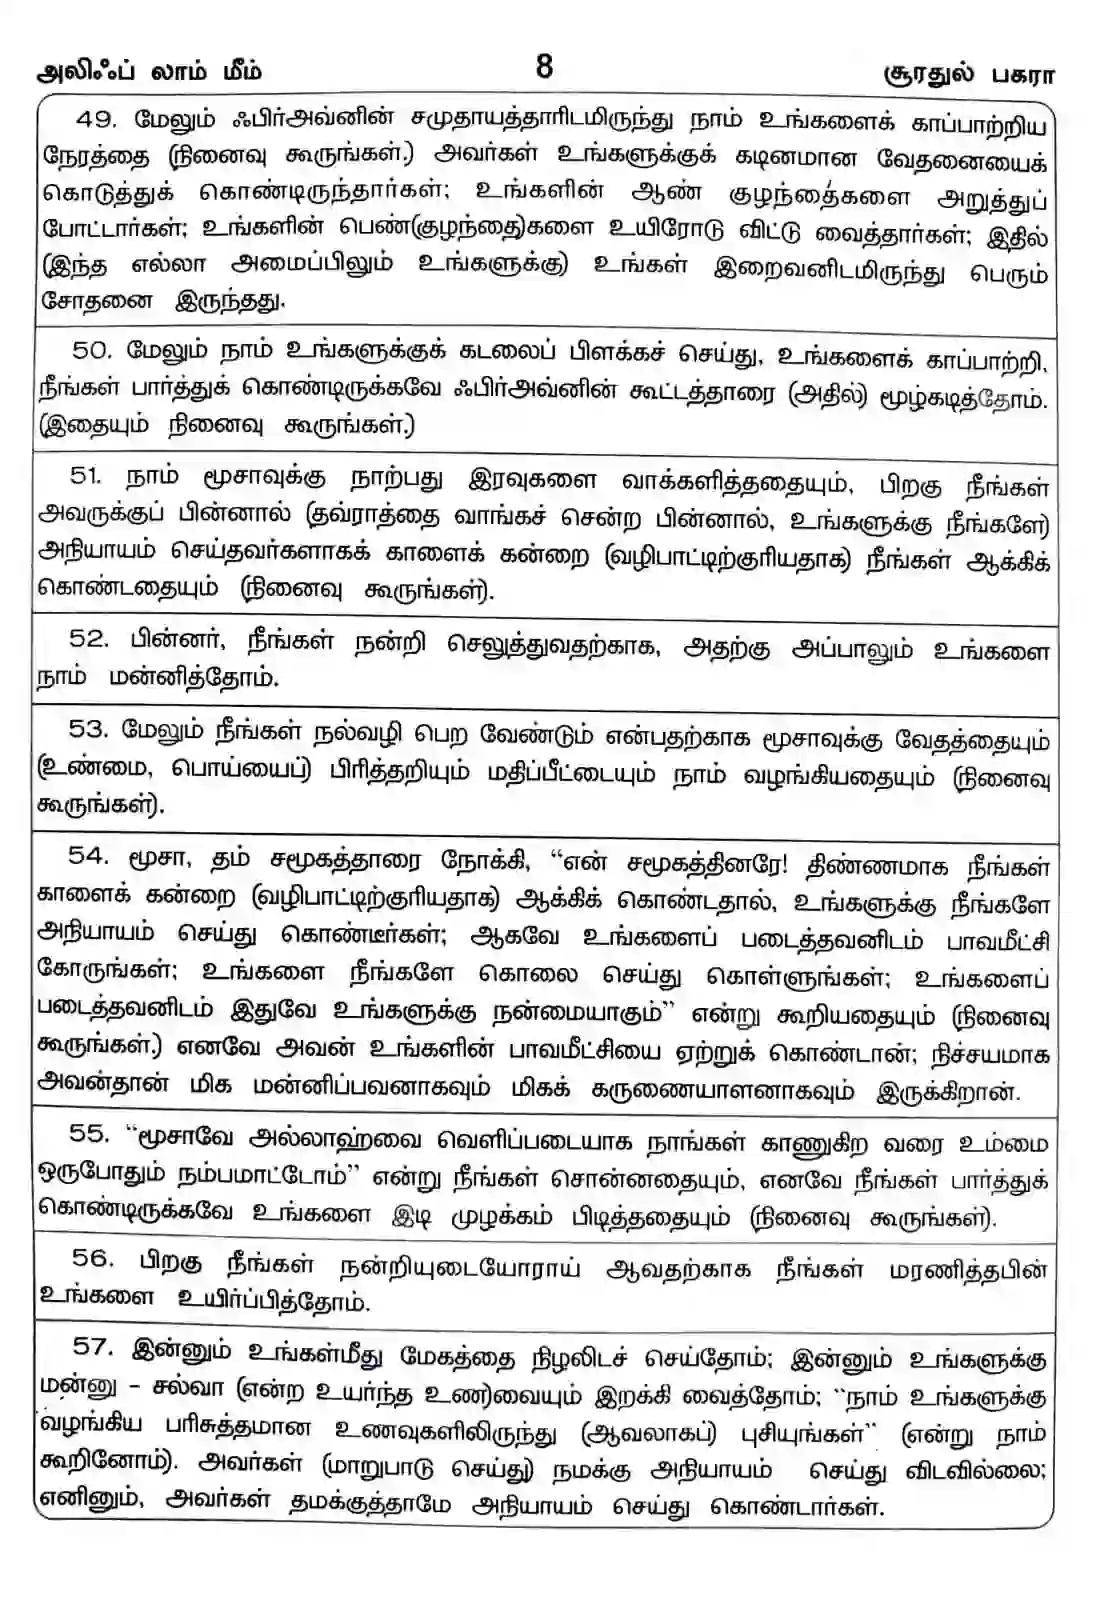 அலிஃப் லாம் மீம்
8
சூரதுல் பகரா
49. மேலும் ஃபிர்அவ்னின் சமுதாயத்தாரிடமிருந்து நாம் உங்களைக் காப்பாற்றிய
நேரத்தை (நினைவு கூருங்கள்.) அவர்கள் உங்களுக்குக் கடினமான வேதனையைக்
கொடுத்துக் கொண்டிருந்தார்கள்; உங்களின் ஆண் குழந்தைகளை அறுத்துப்
போட்டார்கள்; உங்களின் பெண்(குழந்தை)களை உயிரோடு விட்டு வைத்தார்கள்; இதில்
(இந்த எல்லா அமைப்பிலும் உங்களுக்கு) உங்கள் இறைவனிடமிருந்து பெரும்
சோதனை இருந்தது.
50. மேலும் நாம் உங்களுக்குக் கடலைப் பிளக்கச் செய்து, உங்களைக் காப்பாற்றி,
நீங்கள் பார்த்துக் கொண்டிருக்கவே ஃபிர்அவ்னின் கூட்டத்தாரை (அதில்) மூழ்கடித்தோம்.
(இதையும் நினைவு கூருங்கள்.)
51. நாம் மூசாவுக்கு நாற்பது இரவுகளை வாக்களித்ததையும், பிறகு நீங்கள்
அவருக்குப் பின்னால் (தவ்ராத்தை வாங்கச் சென்ற பின்னால், உங்களுக்கு நீங்களே)
அநியாயம் செய்தவர்களாகக் காளைக் கன்றை (வழிபாட்டிற்குரியதாக) நீங்கள் ஆக்கிக்
கொண்டதையும் (நினைவு கூருங்கள்).
52. பின்னர், நீங்கள் நன்றி செலுத்துவதற்காக, அதற்கு அப்பாலும் உங்களை
நாம் மன்னித்தோம்.
53. மேலும் நீங்கள் நல்வழி பெற வேண்டும் என்பதற்காக மூசாவுக்கு வேதத்தையும்
(உண்மை, பொய்யைப்) பிரித்தறியும் மதிப்பீட்டையும் நாம் வழங்கியதையும் (நினைவு
கூருங்கள்).
54. மூசா, தம் சமூகத்தாரை நோக்கி, “என் சமூகத்தினரே! திண்ணமாக நீங்கள்
காளைக் கன்றை (வழிபாட்டிற்குரியதாக) ஆக்கிக் கொண்டதால், உங்களுக்கு நீங்களே
அநியாயம் செய்து கொண்டீர்கள்; ஆகவே உங்களைப் படைத்தவனிடம் பாவமீட்சி
கோருங்கள்; உங்களை நீங்களே கொலை செய்து கொள்ளுங்கள்; உங்களைப்
படைத்தவனிடம் இதுவே உங்களுக்கு நன்மையாகும்” என்று கூறியதையும் (நினைவு
கூருங்கள்.) எனவே அவன் உங்களின் பாவமீட்சியை ஏற்றுக் கொண்டான்; நிச்சயமாக
அவன்தான் மிக மன்னிப்பவனாகவும் மிகக் கருணையாளனாகவும் இருக்கிறான்.
55. “மூசாவே அல்லாஹ்வை வெளிப்படையாக நாங்கள் காணுகிற வரை உம்மை
ஒருபோதும் நம்பமாட்டோம்” என்று நீங்கள் சொன்னதையும், எனவே நீங்கள் பார்த்துக்
கொண்டிருக்கவே உங்களை இடி முழக்கம் பிடித்ததையும் (நினைவு கூருங்கள்).
56. பிறகு நீங்கள் நன்றியுடையோராய் ஆவதற்காக நீங்கள் மரணித்தபின்
உங்களை உயிர்ப்பித்தோம்.
57. இன்னும் உங்கள்மீது மேகத்தை நிழலிடச் செய்தோம்; இன்னும் உங்களுக்கு
மன்னு – சல்வா (என்ற உயர்ந்த உண)வையும் இறக்கி வைத்தோம்; “நாம் உங்களுக்கு
வழங்கிய பரிசுத்தமான உணவுகளிலிருந்து (ஆவலாகப்) புசியுங்கள்” (என்று நாம்
கூறினோம்). அவர்கள் (மாறுபாடு செய்து) நமக்கு அநியாயம் செய்து விடவில்லை;
எனினும், அவர்கள் தமக்குத்தாமே அநியாயம் செய்து கொண்டார்கள்.